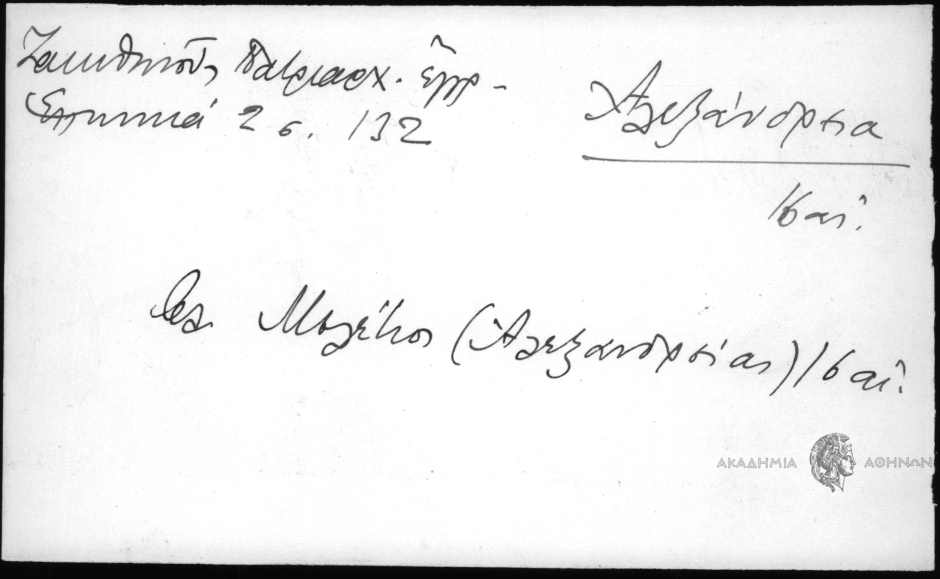 Ζακυθηνοῦ, Πατριαρχ. ἔγγρ -
Ἑλληνικά 2 σ. 132
Ἀλεξάνδρεια
16 αἰ.
βλ. Μελέτιος (Ἀλεξανδρείας) 16 αἰ.
ΑΚΑΔΗΜΙΑ ΑΘΗΝΩΝ